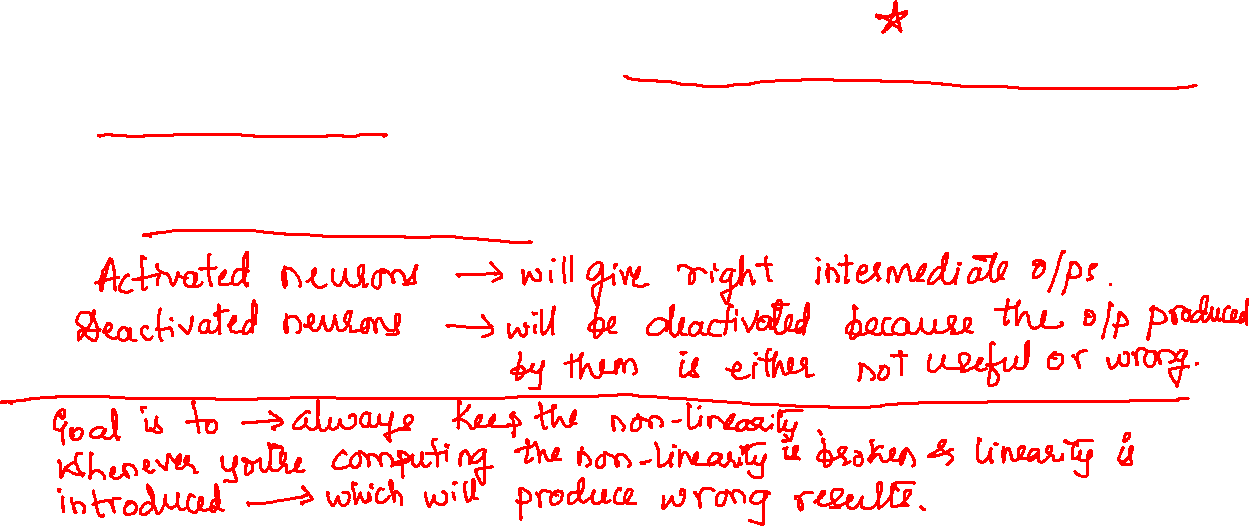 Activated neurons → will give right intermediate o/ps.
Deactivated neurons → will be deactivated because the o/p produced
by them is either not useful or wrong.
Goal is to → always keep the non-linearity.
Whenever you're computing the non-linearity is broken & linearity is
introduced → which will produce wrong results.